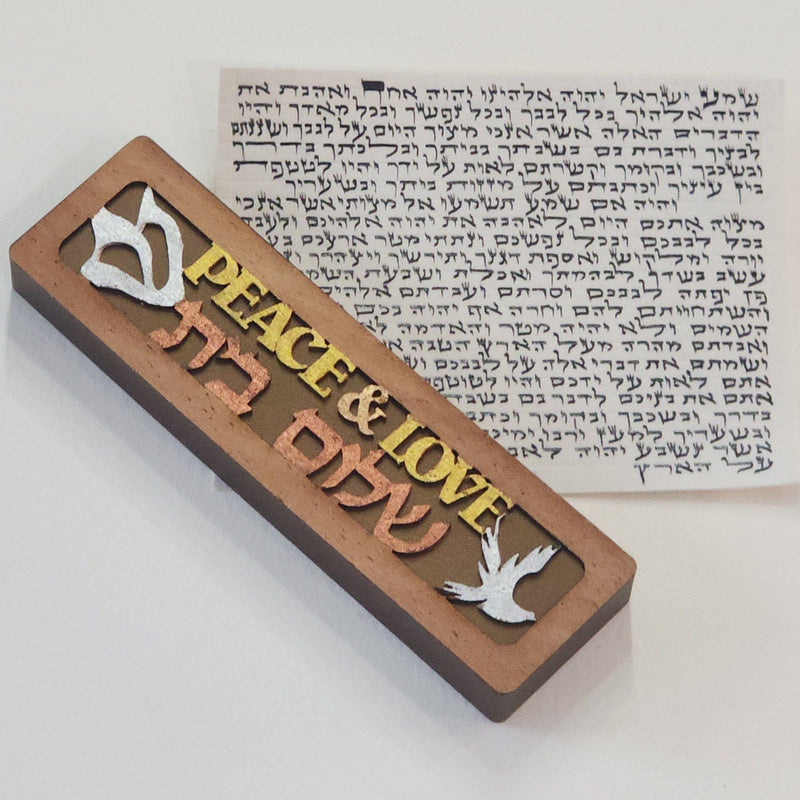 ש
PEACE & LOVE
שלום בית
שמע ישראל יהוה אלהינו יהוה אחד ואהבת את
יהוה אלהיך בכל לבבך ובכל נפשך ובכל מאדך והיו
הדברים האלה אשר אנכי מצוך היום על לבבך ושננתם
לבניך ודברת בם בשבתך בביתך ובלכתך בדרך
ובשכבך ובקומך וקשרתם לאות על ידך והיו לטטפת
בין עיניך וכתבתם על מזוזות ביתך ובשעריך
והיה אם שמע תשמעו אל מצותי אשר אנכי
מצוה אתכם היום לאהבה את יהוה אלהיכם
בכל לבבכם ובכל נפשכם ונתתי מטר ארצכם
יורה ומלקוש ואספת דגנך ותירשך ויצהרך
עשב בשדך לבהמתך ואכלת ושבעת
פן יפתה לבבכם וסרתם ועבדתם
והשתחויתם להם וחרה אף יהוה
השמים ולא יהיה מטר והאדמה
ואבדתם מהרה מעל הארץ
ושמתם את דברי אלה על
אתם לאות על ידכם והיו לטוטפת
אתם את בניכם לדבר בם
בדרך ובשכבך ובקומך
ובשעריך למען ירבו
אשר נשבע יהוה
על הארץ